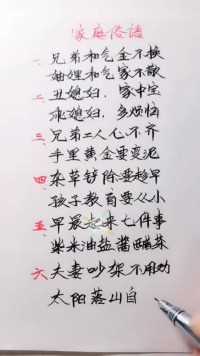 家庭俗语
一、兄弟和气金不换
妯娌和气家不散
二、丑媳妇，家中宝
乖媳妇，多烦恼
三、兄弟二人心不齐
手里黄金要变泥
四、杂草铲除要趁早
孩子教育要从小
五、早晨起来七件事
柴米油盐酱醋茶
六、夫妻吵架不用劝
太阳落山自